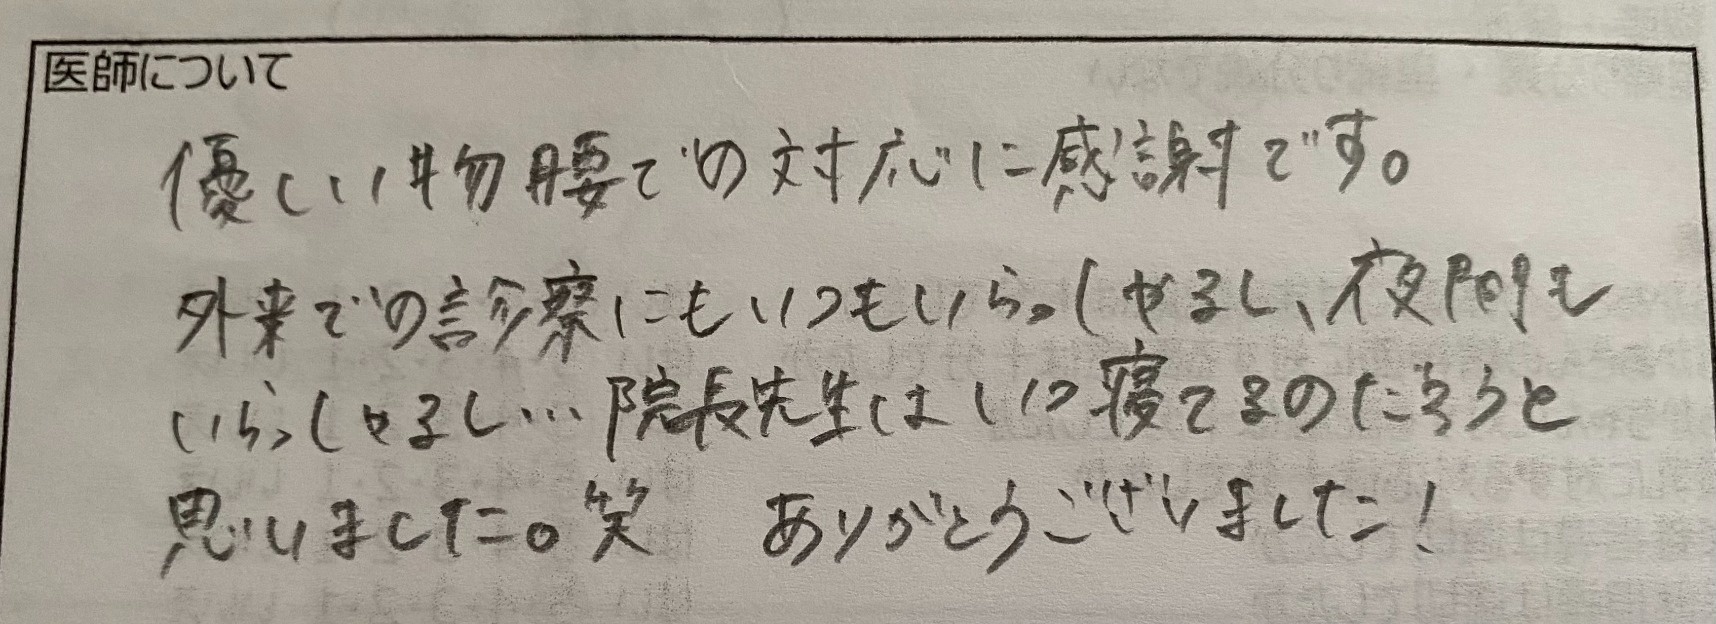 医師について
優しい物腰での対応に感謝です。
外来での診察にもいつもいらっしゃるし、夜間も
いらっしゃるし…院長先生はいつ寝てるのだろうと
思いました。笑　ありがとうございました！